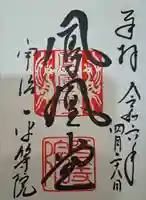 奉拝
令和六年
四月二八日
鳳凰堂
宇治 平等院